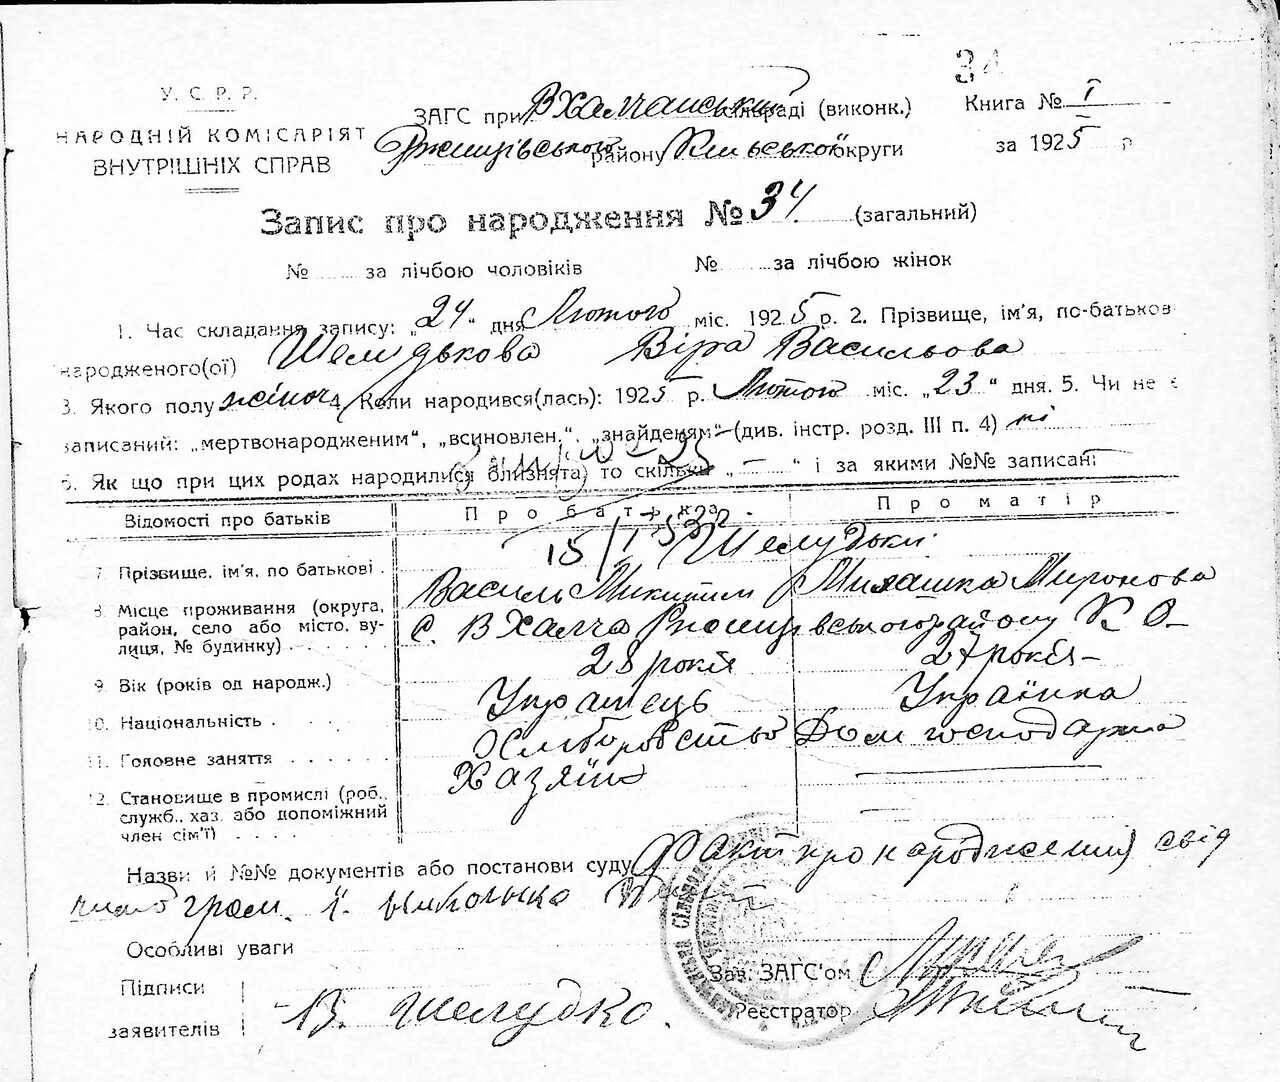 34
У.С.Р.Р.
НАРОДНІЙ КОМІСАРІЯТ
ВНУТРІШНІХ СПРАВ
ЗАГС при ВХалчанській сільраді (виконк.) Книга № I
Ржищівського району Київської округи за 1925 р
Запис про народження № 34 (загальний)
№ за лічбою чоловіків № за лічбою жінок
1. Час складання запису: „24“ дня Лютого міс. 1925 р. 2. Прізвище, ім'я, по-батькові
народженого(ої) Шелудькова Віра Васильова
3. Якого полу жіноч 4. Коли народився(лась): 1925 р. Лютого міс. „23“ дня. 5. Чи не є
записаний: „мертвонародженим“, „всиновлен.“, „знайденям“ (див. інстр. розд. III п. 4) ні
6. Як що при цих родах народилися близнята) то скільки „—“ і за якими №№ записані
Відомості про батьків Про батька Про матір
15/I 53 Шелудьки
7. Прізвище, ім'я, по батькові Василь Микитин Милашка Миронова
8. Місце проживання (округа, с. ВХалча Ржищівського району К О
район, село або місто, ву-
лиця, № будинку)
9. Вік (років од народж.) 28 років 27 років
10. Національність Українець Українка
11. Головне заняття Хліборобство Дом господарка
12. Становище в промислі (роб., Хазяїн
служб., хаз. або допоміжний
член сім'ї)
Назви й №№ документів або постанови суду Факт про народження свід
гром.
Особливі уваги
Зав. ЗАГС'ом
Підписи
заявителів В. Шелудко. Реєстратор